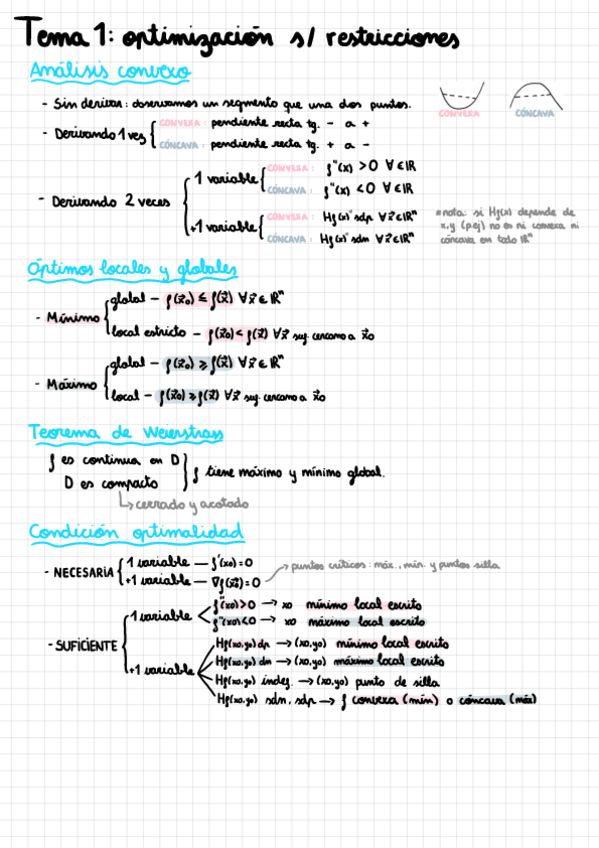 Tema 1: optimización s/ restricciones
Análisis convexo
- Sin derivar: observamos un segmento que una dos puntos.
CONVEXA CÓNCAVA
- Derivando 1 vez
CONVEXA: pendiente recta tg. - a +
CÓNCAVA: pendiente recta tg. + a -
- Derivando 2 veces
1 variable
CONVEXA: f''(x) > 0 ∀ ∈ IR
CÓNCAVA: f''(x) < 0 ∀ ∈ IR
+1 variable
CONVEXA: Hf(x) sdp ∀x⃗ ∈ IRⁿ
CÓNCAVA: Hf(x) sdn ∀x⃗ ∈ IRⁿ
*nota: si Hf(x) depende de
x,y (p.ej) no es ni convexa ni
cóncava en todo IRⁿ
Óptimos locales y globales
- Mínimo
global - f(x⃗o) ≤ f(x⃗) ∀x⃗ ∈ IRⁿ
local estricto - f(x⃗o) < f(x⃗) ∀x⃗ suf. cercano a x⃗o
- Máximo
global - f(x⃗o) ≥ f(x⃗) ∀x⃗ ∈ IRⁿ
local - f(x⃗o) ≥ f(x⃗) ∀x⃗ suf. cercano a x⃗o
Teorema de Weierstrass
f es continua en D
D es compacto
f tiene máximo y mínimo global.
↳ cerrado y acotado
Condición optimalidad
- NECESARIA
1 variable — f'(xo) = 0
+1 variable — ∇f(x⃗o) = 0
→ puntos críticos: máx., mín. y puntos silla
- SUFICIENTE
1 variable
f''(xo) > 0 → xo mínimo local escrito
f''(xo) < 0 → xo máximo local escrito
+1 variable
Hf(xo,yo) dp → (xo,yo) mínimo local escrito
Hf(xo,yo) dn → (xo,yo) máximo local escrito
Hf(xo,yo) indef. → (xo,yo) punto de silla
Hf(xo,yo) sdn, sdp → f convexa (mín) o cóncava (máx)